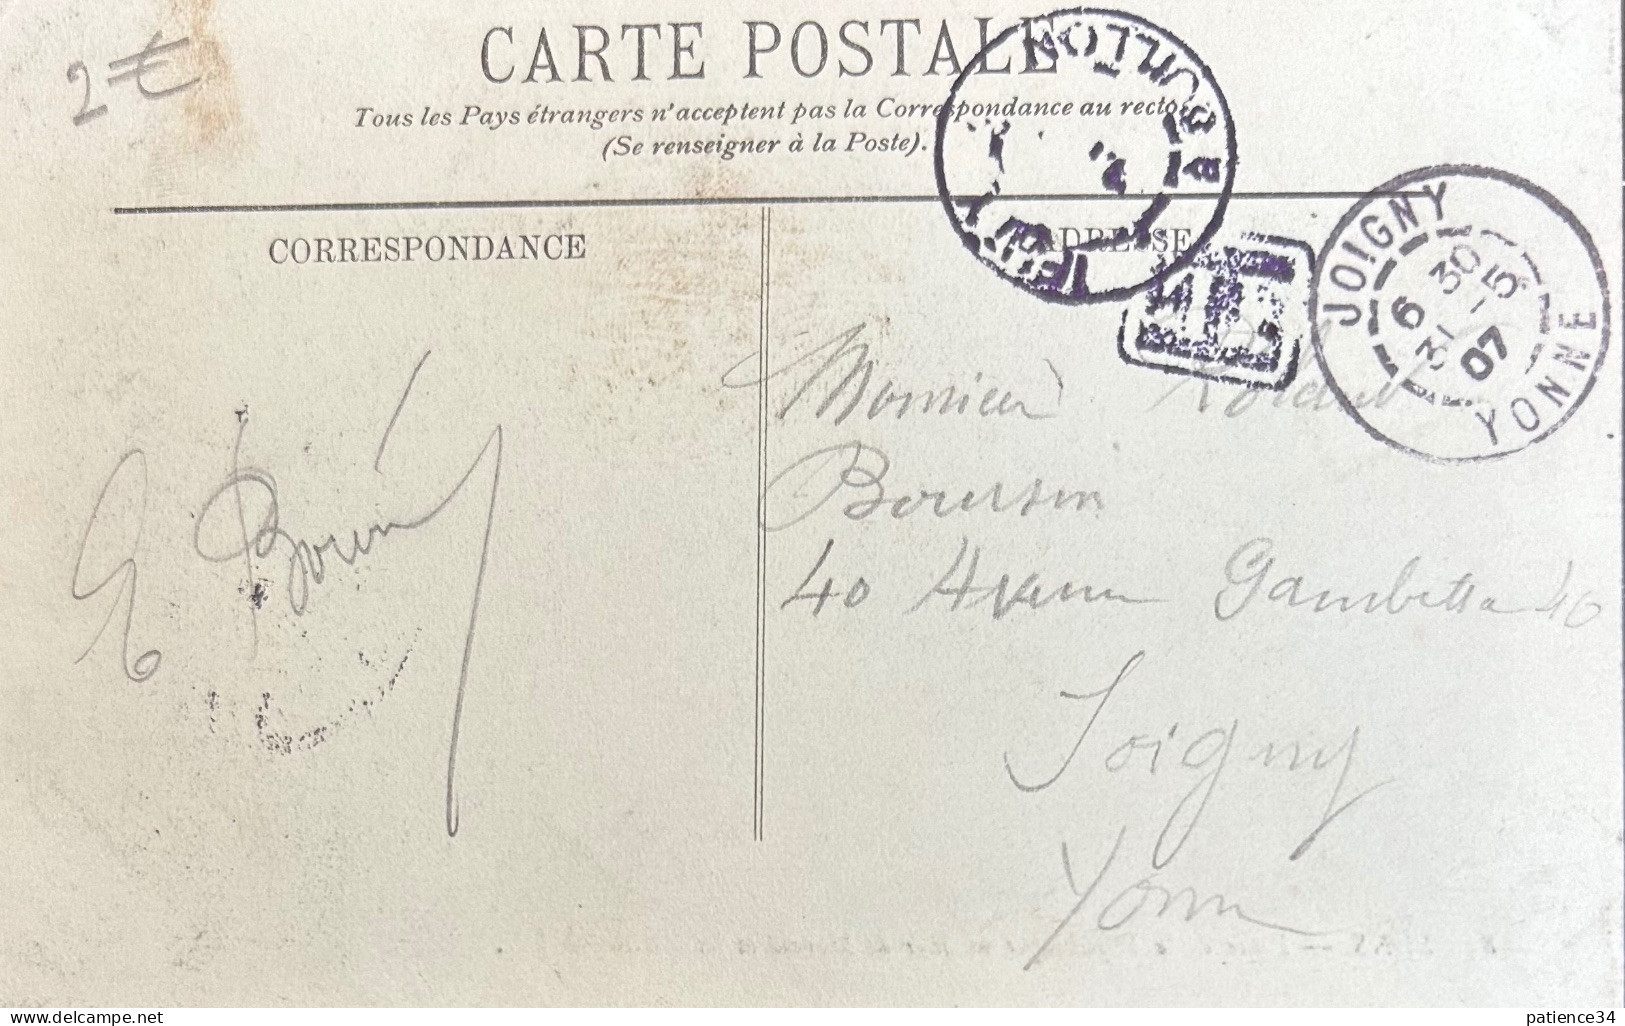 2 €
CARTE POSTALE
Tous les Pays étrangers n'acceptent pas la Correspondance au recto
(Se renseigner à la Poste).
CORRESPONDANCE
ADRESSE
JOIGNY
6 30
31 - 5
07
YONNE
Monsieur Roland
Boursin
40 Avenue Gambetta 40
Joigny
Yonne
E
patience34
www.delcampe.net